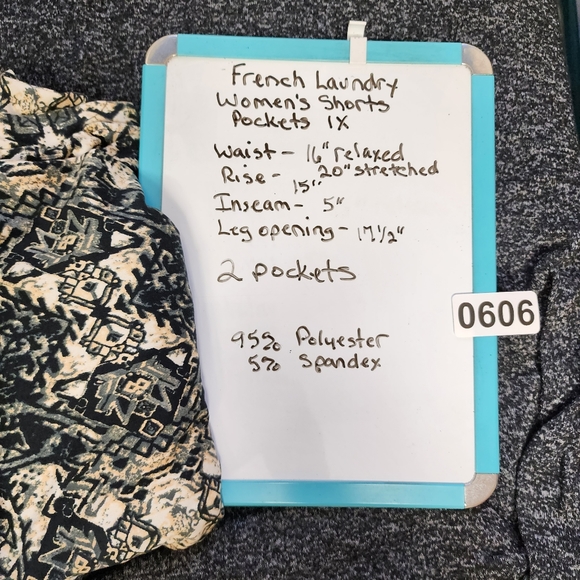 French Laundry
Women's Shorts
Pockets 1X
Waist - 16" relaxed
20" stretched
Rise - 15"
Inseam - 5"
Leg opening - 17 1/2"
2 pockets
0606
95% Polyester
5% Spandex